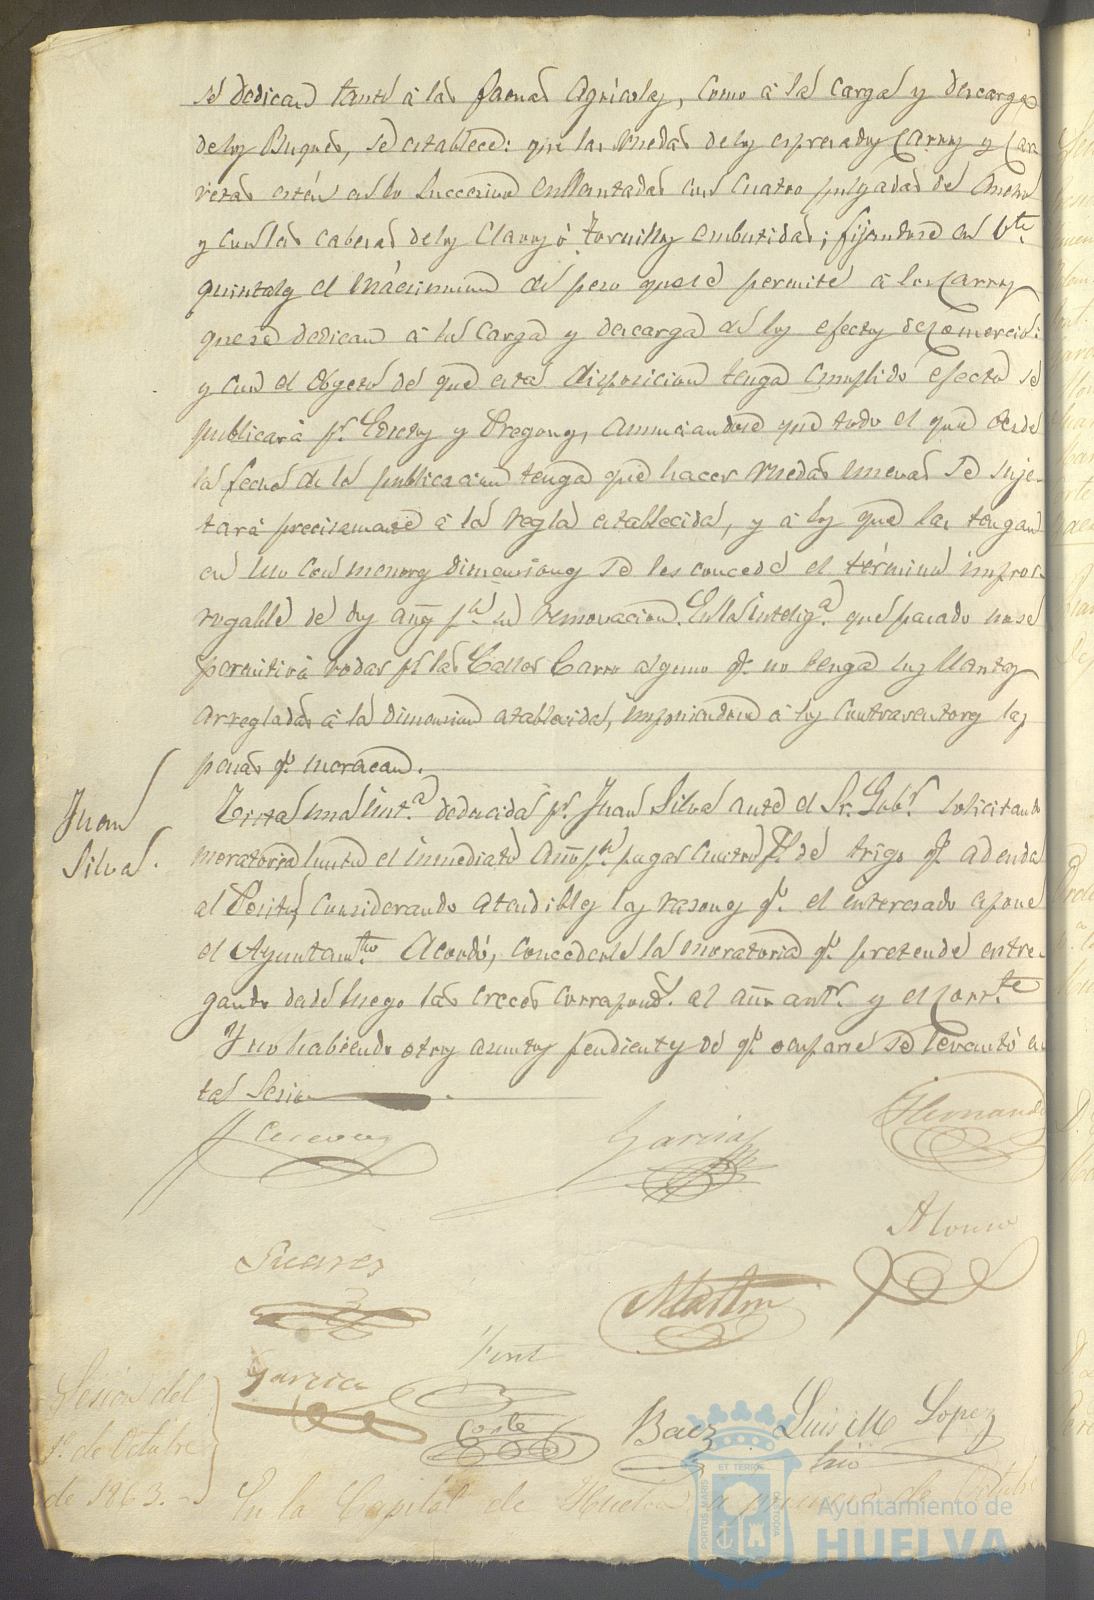 se dedican tanto á las faenas Agricolas, como á la carga y descarga
de los Buques, se establece: que las ruedas de los expresados Carros y Car
retas estén en lo sucesivo enllantadas con cuatro pulgadas de
y con las cabezas de los Clavos ó Tornillos embutidas; fijandose en
quintales el máximum de peso que se permite á los Carros
que se dedican á la carga y descarga de los efectos de comercio:
y con el obgeto de que esta disposicion tenga cumplido efecto se
publicará pr. Edictos y Pregones, anunciandose que todo el que desde
la fecha de la publicacion tenga que hacer ruedas nuevas se suje-
tará precisamente á la regla establecida, y á los que las tengan
en uso con menores dimensiones se les concede el término impror-
rogable de dos años pa. su renovacion. En la inteliga. que pasado no se
permitirá rodar pr. las Calles Carro alguno qe. no tenga sus llantas
arregladas á la dimension establecida, imponiendose á los contraventores las
penas qe. merezcan.
Juan
Silva.
Vista una insta. deducida pr. Juan Silva ante el Sr. Gobr. solicitando
moratoria hasta el inmediato Año pa. pagar cuatro fs. de trigo qe. adeuda
al Posito, considerando atendibles las razones qe. el interesado espone
el Ayuntamto. Acordó, concederle la moratoria qe. pretende entre-
gando desde luego las creces correspond. al año antr. y el corrte.
Y no habiendo otros asuntos pendientes de qe. ocuparse se levantó es
ta Sesion.
Garcia
Hernandez
Suarez
Martin
Alonso
Garcia
Font
Corte
Baez
Luis M Lopez
Srio
Sesion del
1º. de Octubre
de 1863.
En la Capital de Huelva a primero de Octubre
PORTUS MARIS ET TERRE CUSTODIA
Ayuntamiento de
HUELVA